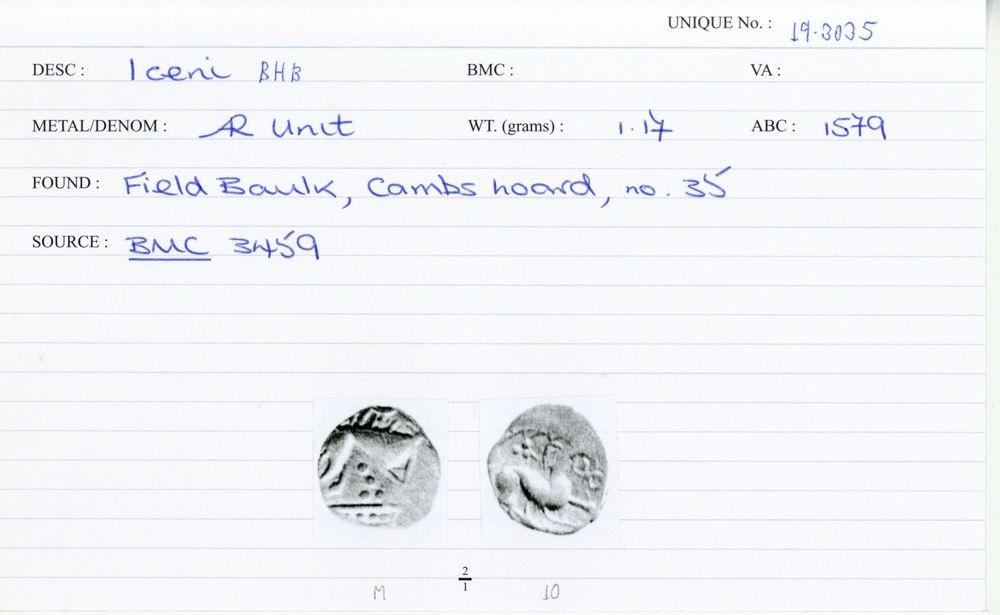 UNIQUE No. : 19.3035
DESC : Iceni BHB BMC : VA :
METAL/DENOM : AR Unit WT. (grams) : 1.17 ABC : 1579
FOUND : Field Baulk, Cambs hoard, no. 35
SOURCE : BMC 3459
2
1
M 10